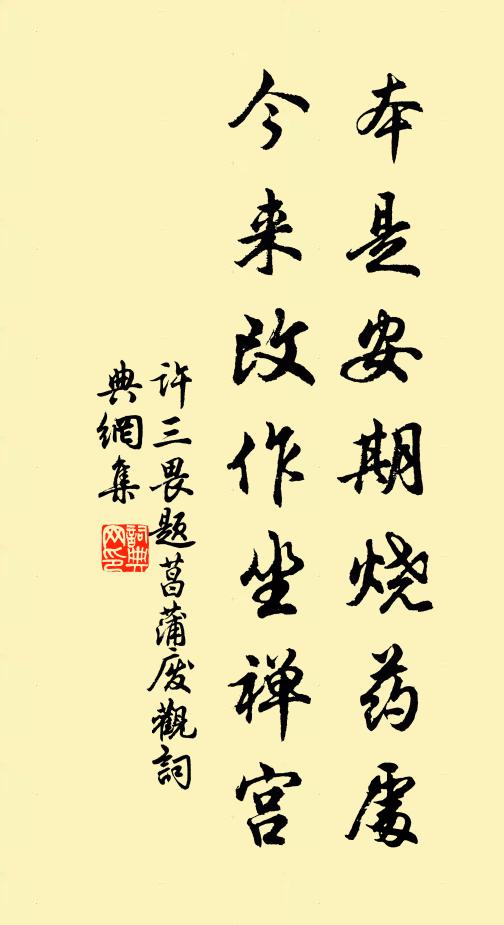 本是安期烧药處
今来改作坐禅宫
许三畏题菖蒲废觀词
典網集
詞典網印